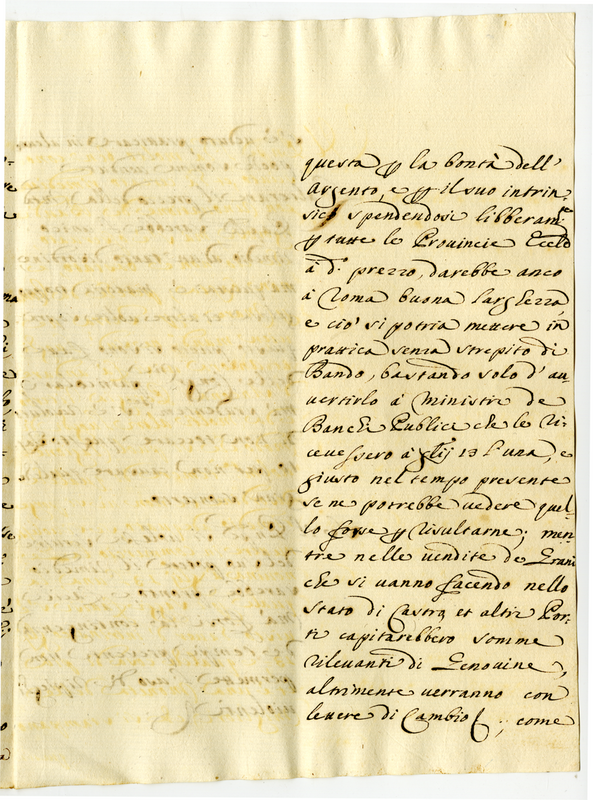 questa ꝑ la bontà dell'
Argento, e ꝑ il suo intrin,
sico spendendosi libberam.te
ꝑ tutte le Provincie Eccl.
à d.o prezzo, darebbe anco
à Roma buona larghezza,
e ciò si potria mettere in
prattica senza strepito di
Bando, bastando solo d'au,
vertirlo à Ministri de
Banchi Publici che le ri,
cevessero à 13 l'una, e
giusto nel tempo presente
se ne potrebbe vedere quel,
lo forse ꝑ risultarne; men,
tre nelle vendite de Grani
che si vanno facendo nello
Stato di Castro, et altri Por,
ti capitarebbero somme
rilevanti di Genovine,
altrimente verranno con
lettere di Cambio; come